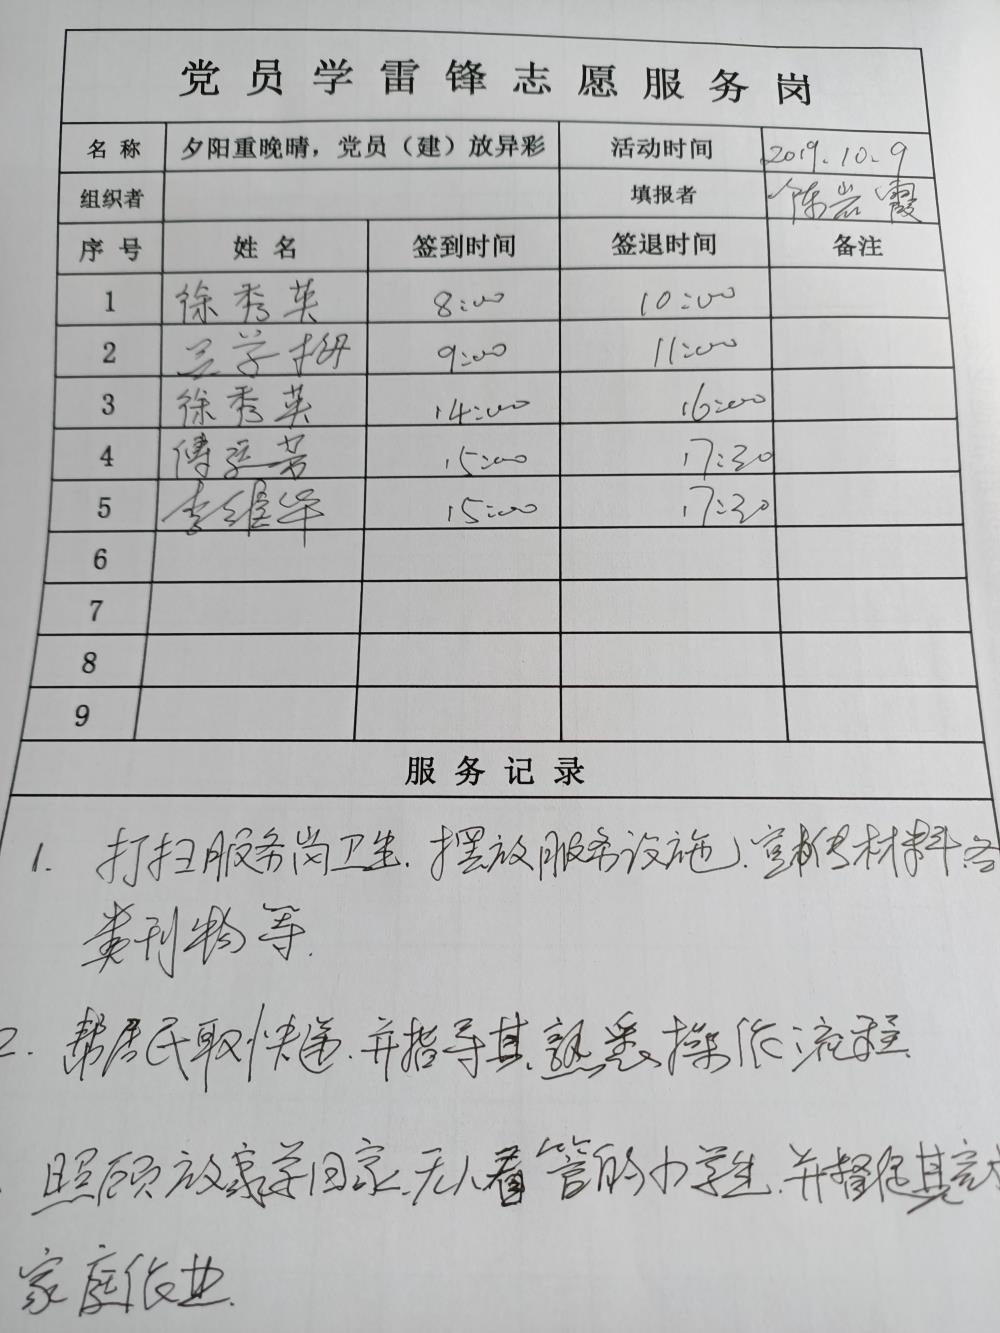 党员学雷锋志愿服务岗
名称 夕阳重晚晴，党员（建）放异彩 活动时间 2019.10.9
组织者 填报者 陈岩霞
序号 姓名 签到时间 签退时间 备注
1 徐秀英 8:00 10:00
2 兰学栂 9:00 11:00
3 徐秀英 14:00 16:00
4 傅亚芳 15:00 17:30
5 李维华 15:00 17:30
6
7
8
9
服务记录
1. 打扫服务岗卫生、摆放服务设施、宣传材料、各
类刊物等.
2. 帮居民取快递、并指导其熟悉操作流程
照顾放学回家、无人看管的小学生、并督促其完成
家庭作业.